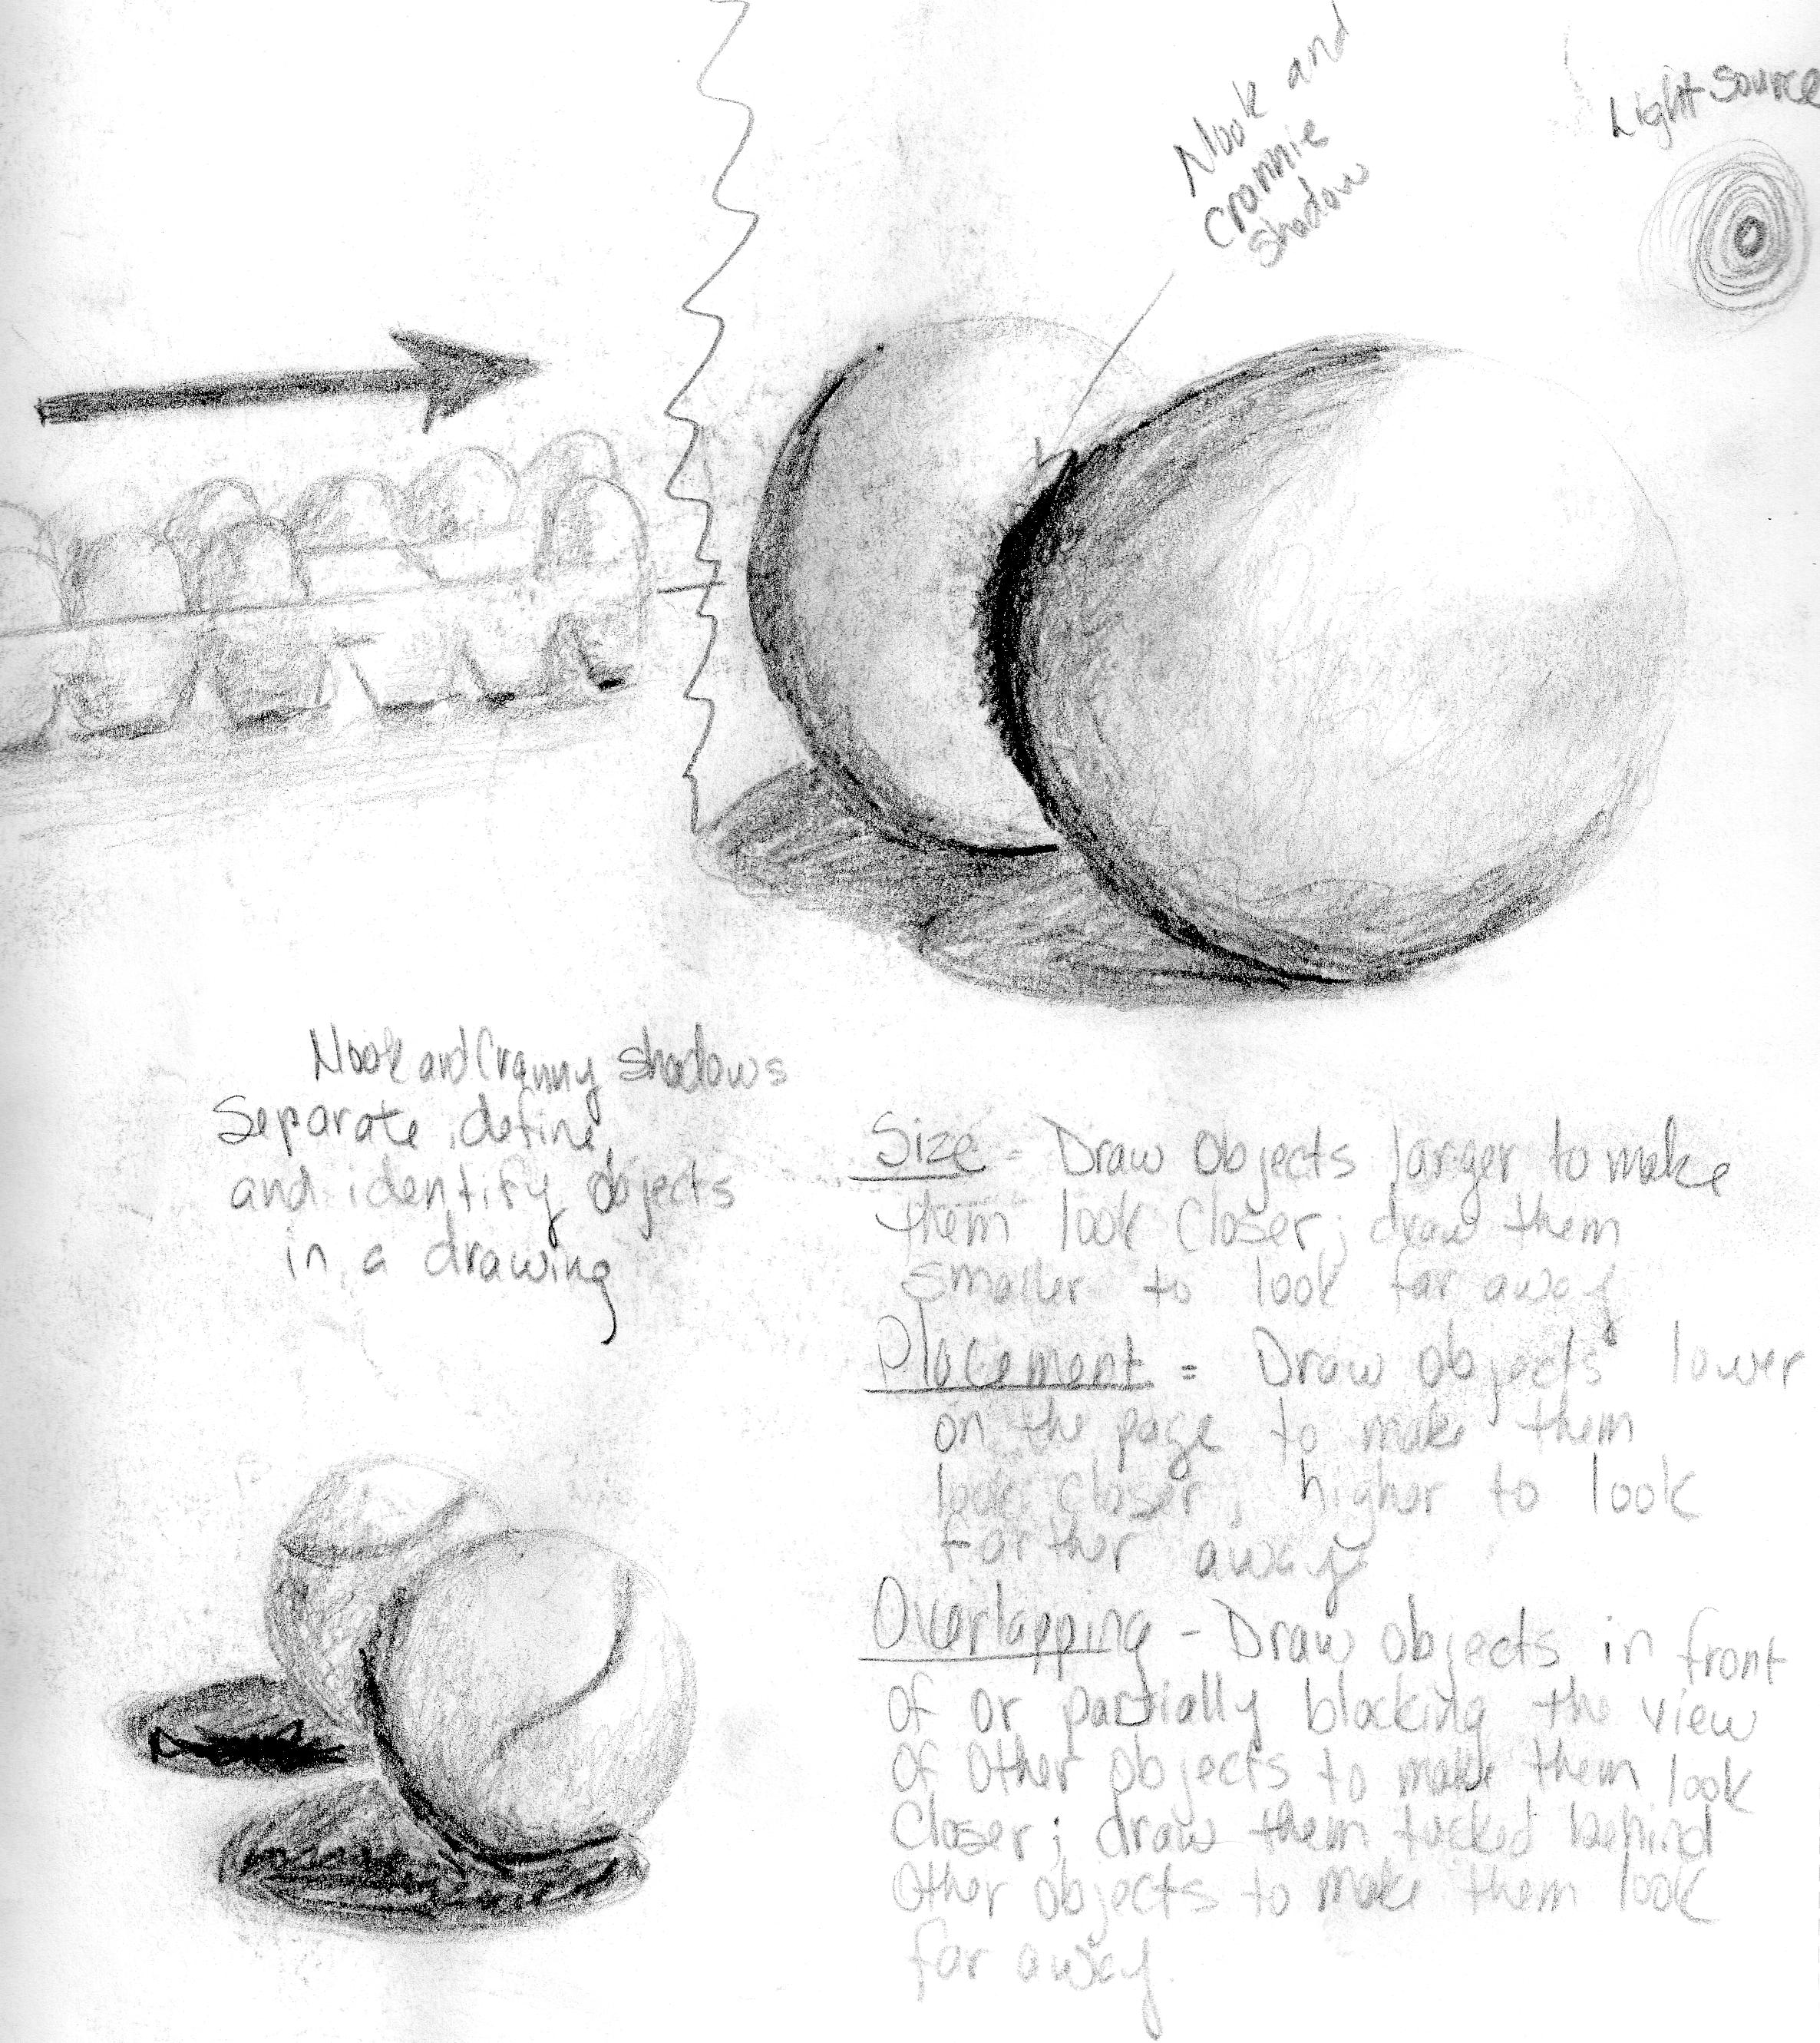 Light Source
Nook and
crannie
shadow
Nook and Cranny shadows
Separate, define,
and identify objects
in a drawing
Size = Draw Objects larger to make
them look closer; draw them
smaller to look far away
Placement = Draw objects lower
on the page to make them
look closer, higher to look
farther away
Overlapping - Draw objects in front
of or partially blocking the view
of other objects to make them look
closer; draw them tucked behind
other objects to make them look
far away.